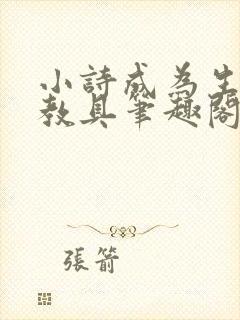 小詩成為生
教具筆趣閣
張箭